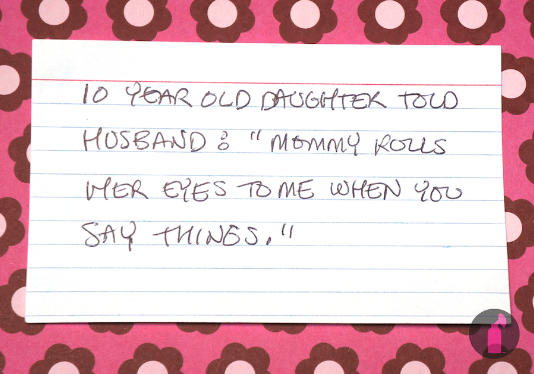 10 YEAR OLD DAUGHTER TOLD
HUSBAND : "MOMMY ROLLS
HER EYES TO ME WHEN YOU
SAY THINGS."